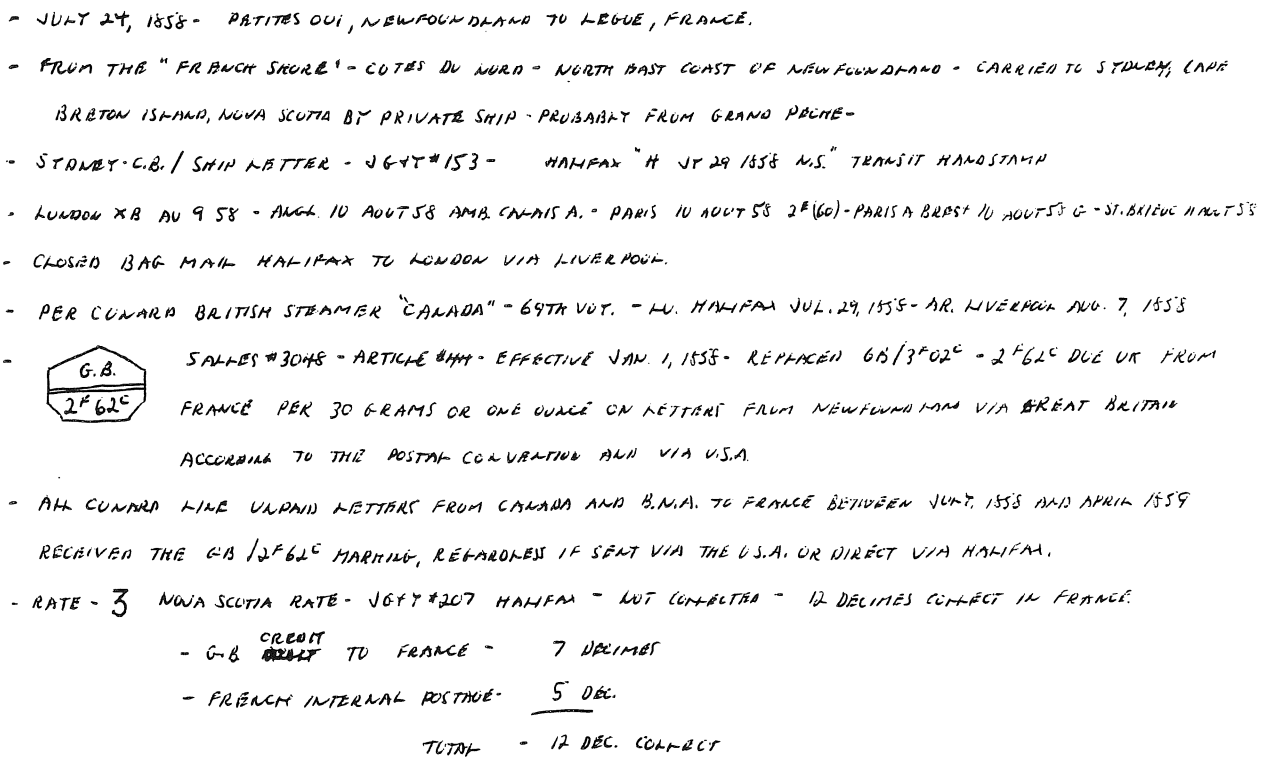 - JULY 24, 1858 - PETITES OUI, NEWFOUNDLAND TO LEGUE, FRANCE.
- FROM THE "FRENCH SHORE" - COTES DU NORD - NORTH EAST COAST OF NEWFOUNDLAND - CARRIED TO SYDNEY, CAPE
BRETON ISLAND, NOVA SCOTIA BY PRIVATE SHIP - PROBABLY FROM GRAND PECHE -
- SYDNEY - C.B. / SHIP LETTER - JGYY #153 - HALIFAX "H JY 29 1858 N.S." TRANSIT HANDSTAMP
- LONDON XB AU 9 58 - ANGL. 10 AOUT 58 AMB. CALAIS A. - PARIS 10 AOUT 58 2E (60) - PARIS A BREST 10 AOUT 58 G - ST. BRIEUC 11 AOUT 58
- CLOSED BAG MAIL HALIFAX TO LONDON VIA LIVERPOOL.
- PER CUNARD BRITISH STEAMER "CANADA" - 69TH VOY. - LV. HALIFAX JUL. 29, 1858 - AR. LIVERPOOL AUG. 7, 1858
- G.B.
2F 62C
SALLES #3048 - ARTICLE #44 - EFFECTIVE JAN. 1, 1858 - REPLACED GB/3F02C - 2F62C DUE UK FROM
FRANCE PER 30 GRAMS OR ONE OUNCE ON LETTERS FROM NEWFOUNDLAND VIA GREAT BRITAIN
ACCORDING TO THE POSTAL CONVENTION AND VIA U.S.A.
- ALL CUNARD LINE UNPAID LETTERS FROM CANADA AND B.N.A. TO FRANCE BETWEEN JULY, 1858 AND APRIL 1859
RECEIVED THE GB/2F62C MARKING, REGARDLESS IF SENT VIA THE U.S.A. OR DIRECT VIA HALIFAX.
- RATE - 3 NOVA SCOTIA RATE - JGYY #207 HALIFAX - NOT COLLECTED - 12 DECIMES COLLECT IN FRANCE.
- G.B CREDIT TO FRANCE - 7 DECIMES
- FRENCH INTERNAL POSTAGE - 5 DEC.
TOTAL - 12 DEC. COLLECT